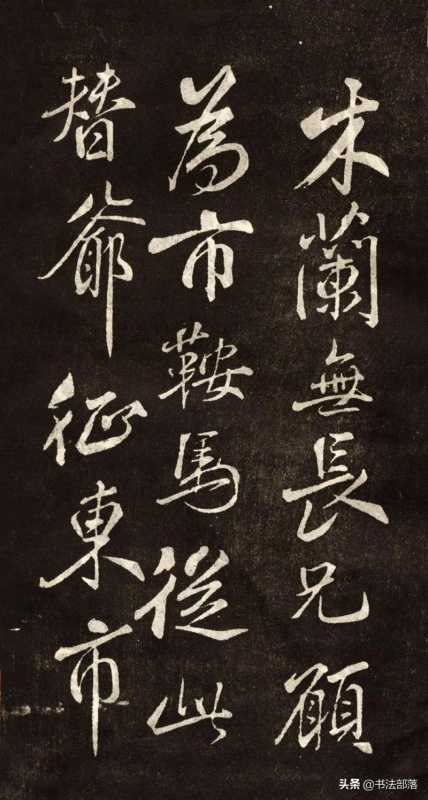 木蘭無長兄願
為市鞍馬從此
替爺征東市
头条 @书法部落